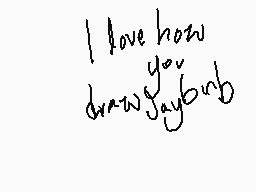 I love how
you
draw Jaybirb